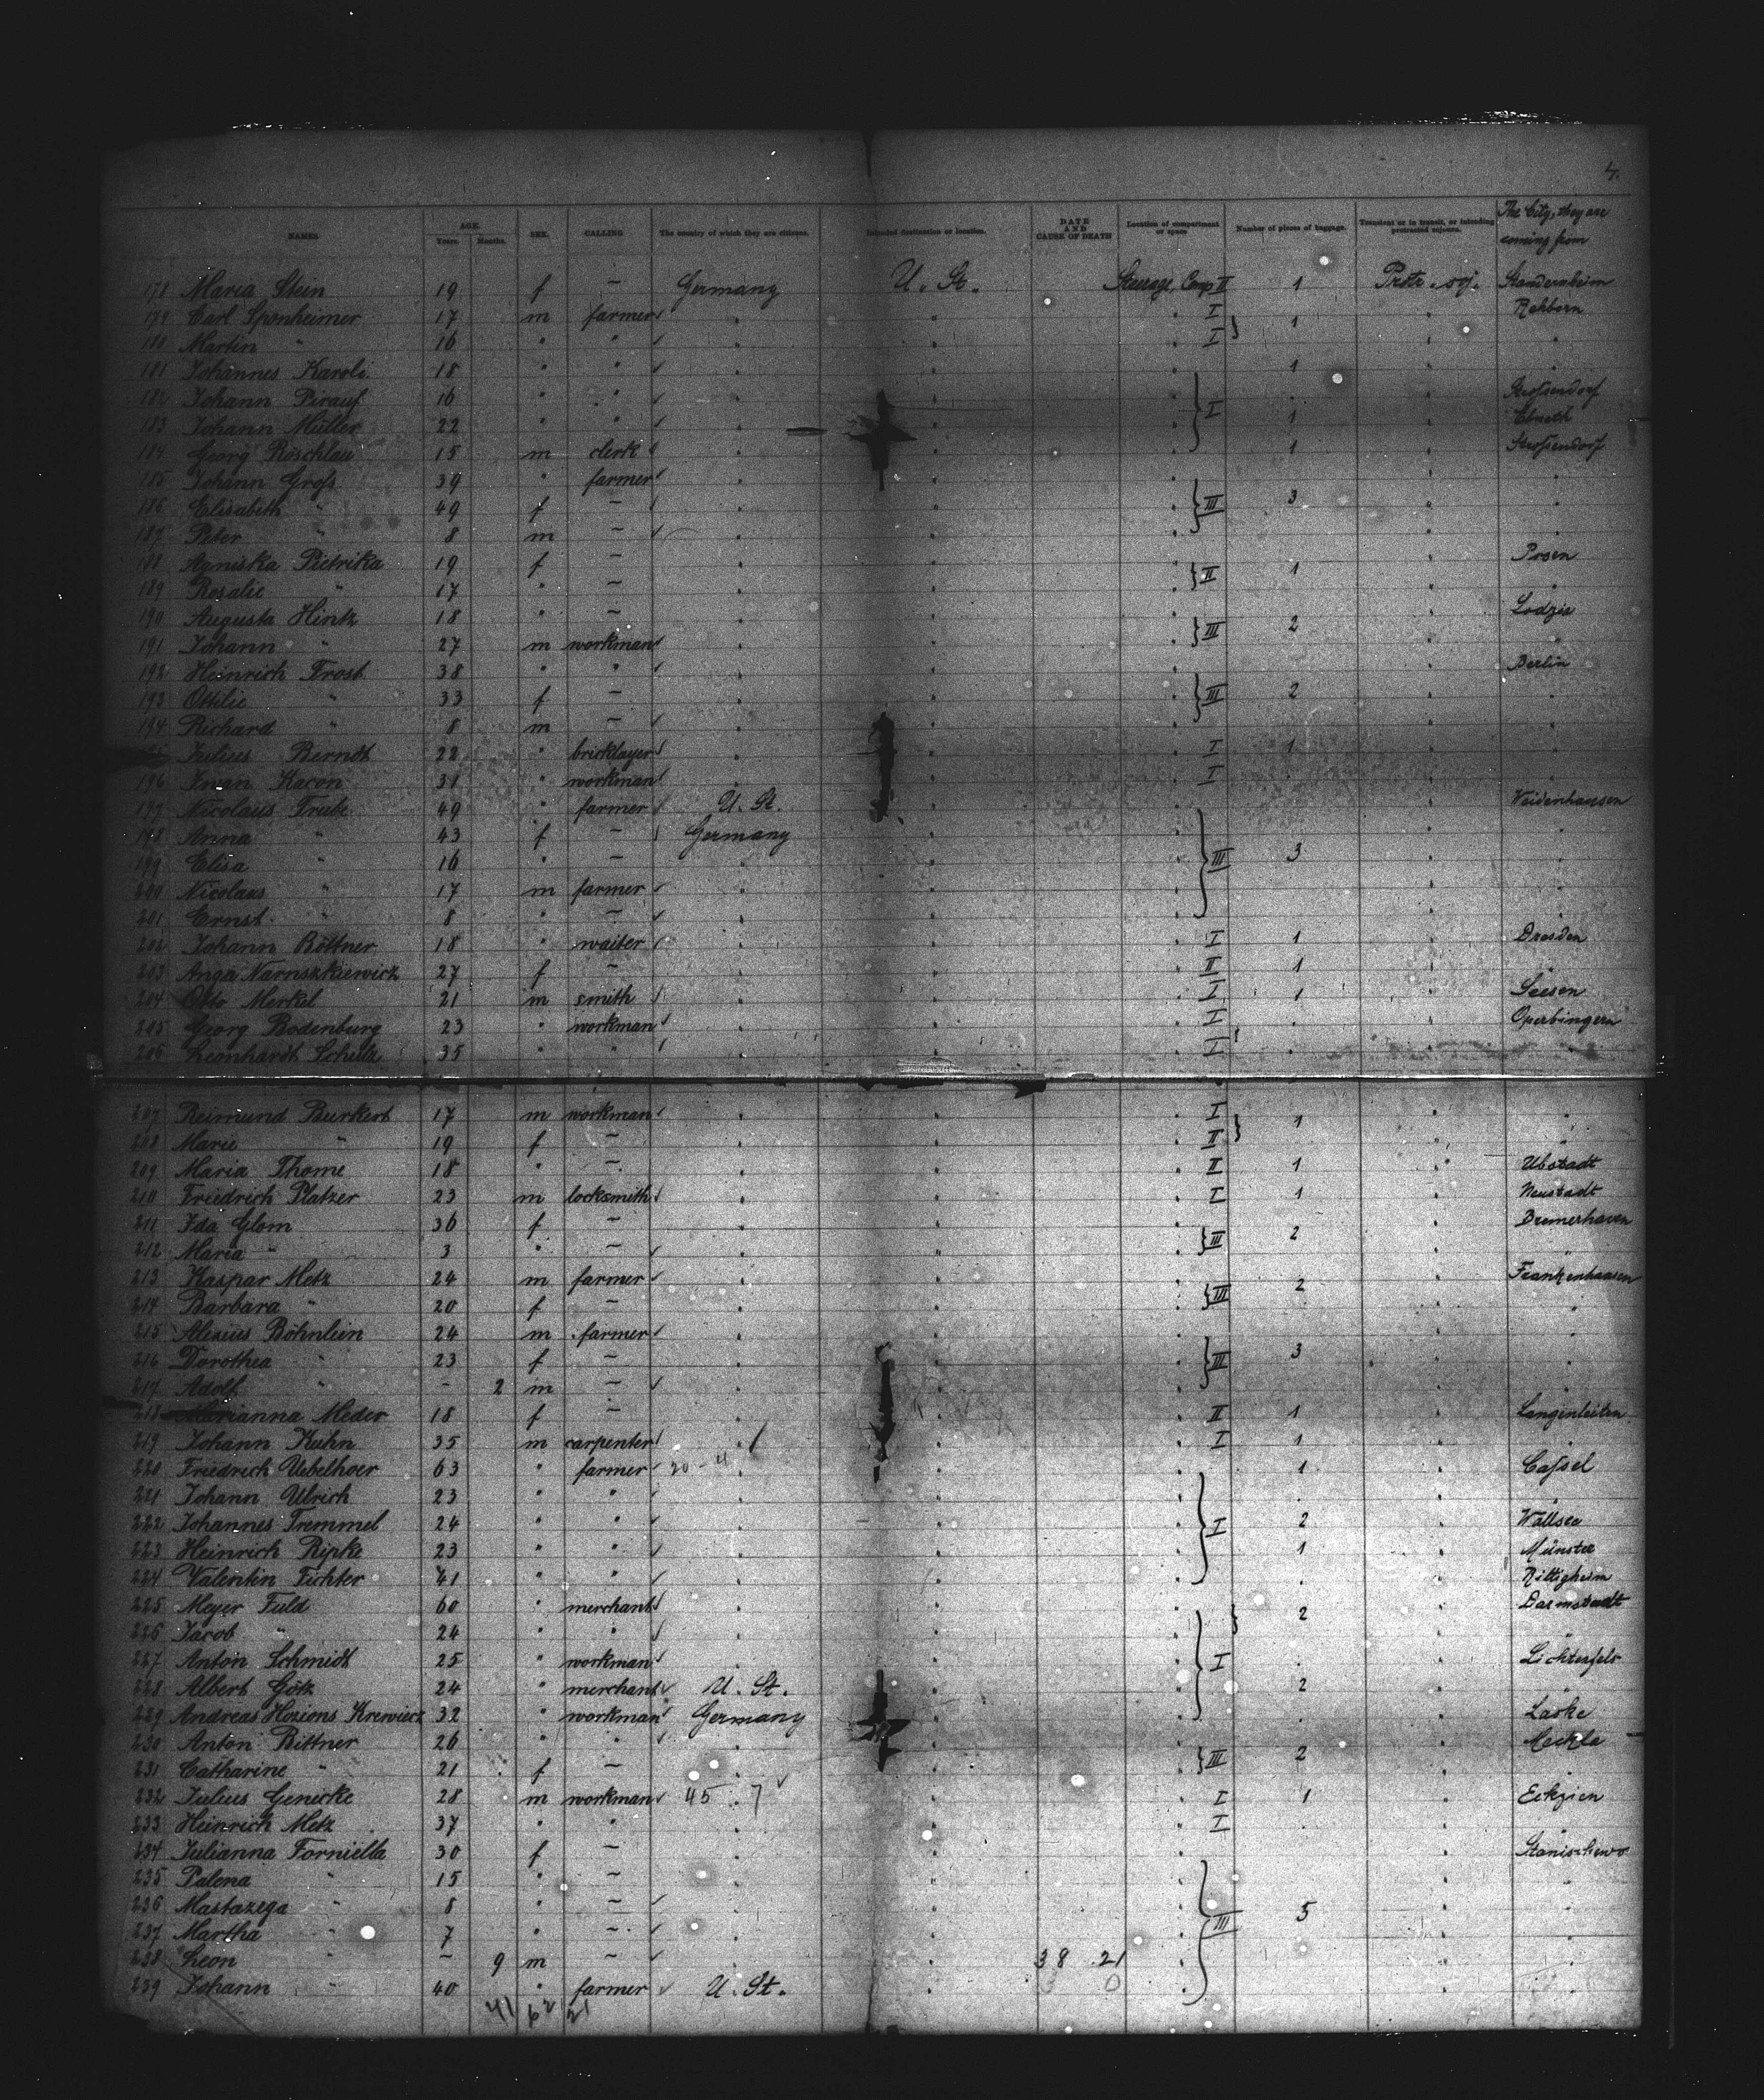 4.
NAMES AGE. Years. Months. SEX. CALLING The country of which they are citizens. Intended destination or location. DATE AND CAUSE OF DEATH Location of compartment or space Number of pieces of baggage. Transient or in transit, or intending protracted sojourn. The City, they are coming from
178 Maria Stein 19 f — Germany U. St. Steerage, Comp II 1 Protr. soj. Standernheim
179 Carl Sponheimer 17 m farmer " " " I 1 " Rehborn
180 Martin " 16 " " " " " I " "
181 Johannes Karoli 18 " " " " " 1 " "
182 Johann Pirauf 16 " " " " " I " "
183 Johann Müller 22 " " " " " 1 "
184 Georg Röschlau 15 m clerk " " " 1 " Strossendorf
185 Johann Gross 39 " farmer " " " " "
186 Elisabeth " 49 f — " " " III 3 " "
187 Peter " 8 m — " " " " "
188 Agniska Pietrika 19 f — " " " II 1 " Posen
189 Rosalie " 17 " — " " " " "
190 Augusta Hintz 18 " — " " " III 2 " Lodzie
191 Johann " 27 m workman " " " " "
192 Heinrich Frost 38 " " " " " " Berlin
193 Ottilie " 33 f — " " " III 2 " "
194 Richard " 8 m — " " " " "
195 Julius Berndt 22 " bricklayer " " " I 1 " "
196 Iwan Kacon 31 " workman " " " I " "
197 Nicolaus Trube 49 " farmer U. St. " " " Weidenhausen
198 Anna " 43 f — Germany " " " "
199 Elisa " 16 " — " " " III 3 " "
200 Nicolaus " 17 m farmer " " " " "
201 Ernst " 8 " — " " " " "
202 Johann Böttner 18 " waiter " " " I 1 " Dresden
203 Anga Narnszkiewicz 27 f — " " " II 1 " "
204 Otto Merkel 21 m smith " " " I 1 " Seesen
205 Georg Bodenburg 23 " workman " " " I " "
206 Leonhardt Schulz 35 " " " " " I " " "
207 Reimund Burkert 17 m workman " " " I 1 " "
208 Marie " 19 f — " " " II " "
209 Maria Thome 18 " — " " " II 1 " Ubstadt
210 Friedrich Platzer 23 m locksmith " " " I 1 " Neustadt
211 Ida Glom 36 f — " " " III 2 " Bremerhaven
212 Maria " 3 " — " " " " "
213 Kaspar Metz 24 m farmer " " " III 2 " Frankenhausen
214 Barbara " 20 f — " " " " "
215 Alexius Böhnlein 24 m farmer " " " " "
216 Dorothea " 23 f — " " " III 3 " "
217 Adolf " – 2 m — " " " " "
218 Marianna Meder 18 f — " " " II 1 " Langenleiten
219 Johann Kuhn 35 m carpenter " " " I 1 " "
220 Friedrich Uebelhoer 63 " farmer " " " 1 " Cassel
221 Johann Ulrich 23 " " " " " " " "
222 Johannes Tremmel 24 " " " " " I 2 " Wallsee
223 Heinrich Ripke 23 " " " " " 1 " Münster
224 Valentin Fichter 41 " " " " " " "
225 Meyer Fuld 60 " merchant " " " 2 " Darmstadt
226 Jacob " 24 " " " " " " "
227 Anton Schmidt 25 " workman " " " I " " Lichtenfels
228 Albert Götz 24 " merchant U. St. " " 2 " "
229 Andreas Hozions Krewiecz 32 " workman Germany " " " " Laske
230 Anton Bittner 26 " " " " " III 2 "
231 Catharine " 21 f — " " " " "
232 Julius Genicke 28 m workman 45 7 " " I 1 "
233 Heinrich Metz 37 " " " " " I " " "
234 Julianna Forniella 30 f — " " " " Stanischewo
235 Palena " 15 " — " " " " "
236 Mastazega " 8 " — " " " III 5 " "
237 Martha " 7 " — " " " " "
238 Leon " – 9 m — " " 38 21 " " "
239 Johann " 40 " farmer U. St. " " " "
41 62 21